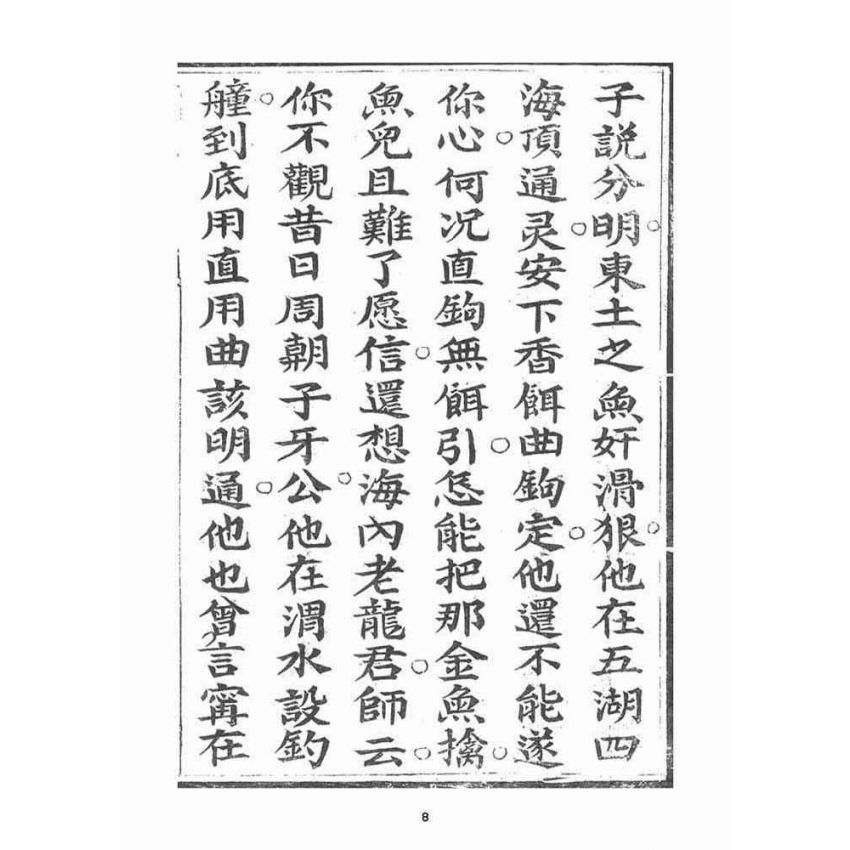 子説分明。東土之魚奸滑狠。他在五湖四
海頂通灵。安下香餌曲鈎定。他還不能遂
你心。何況直鈎無餌引。恁能把那金魚擒。
魚兒且難了愿信。還想海內老龍君。師云。
你不觀昔日周朝子牙公。他在渭水設釣
艟。到底用直用曲該明通。他也曾言寗在
8